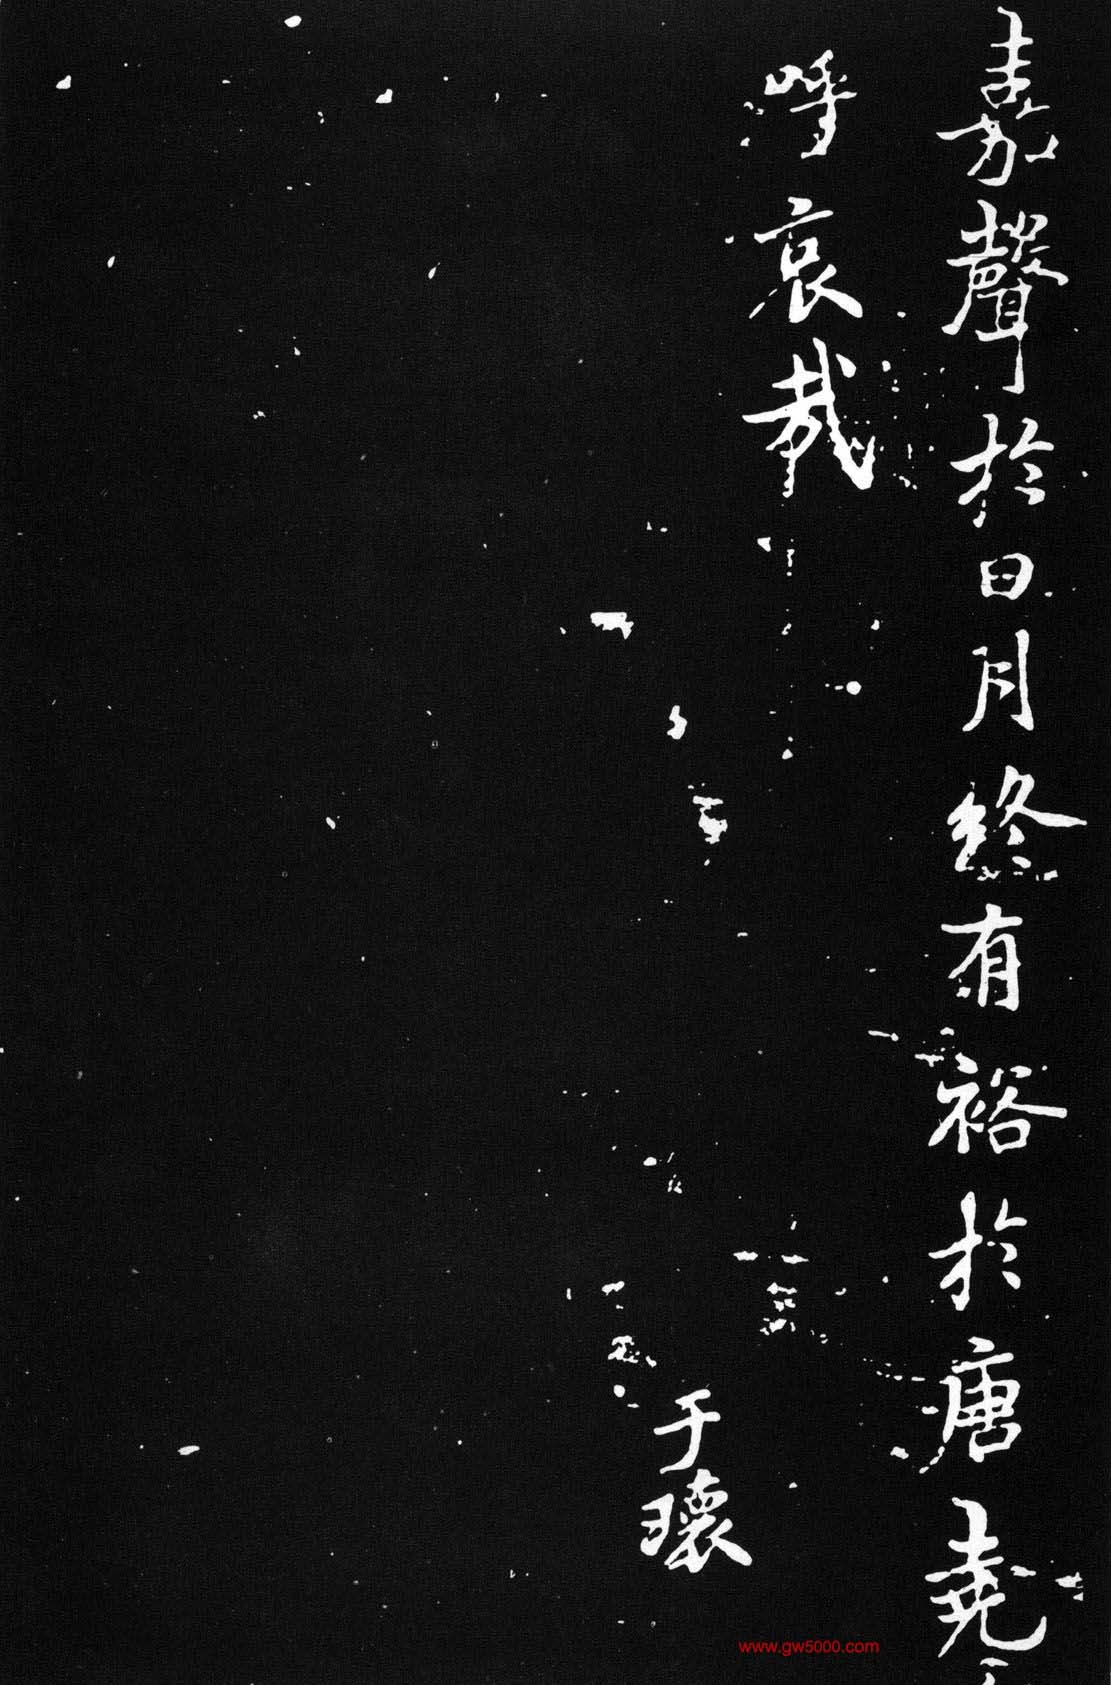 嘉聲於日月終有裕於唐堯
呼哀哉
于瓌
www.gw5000.com